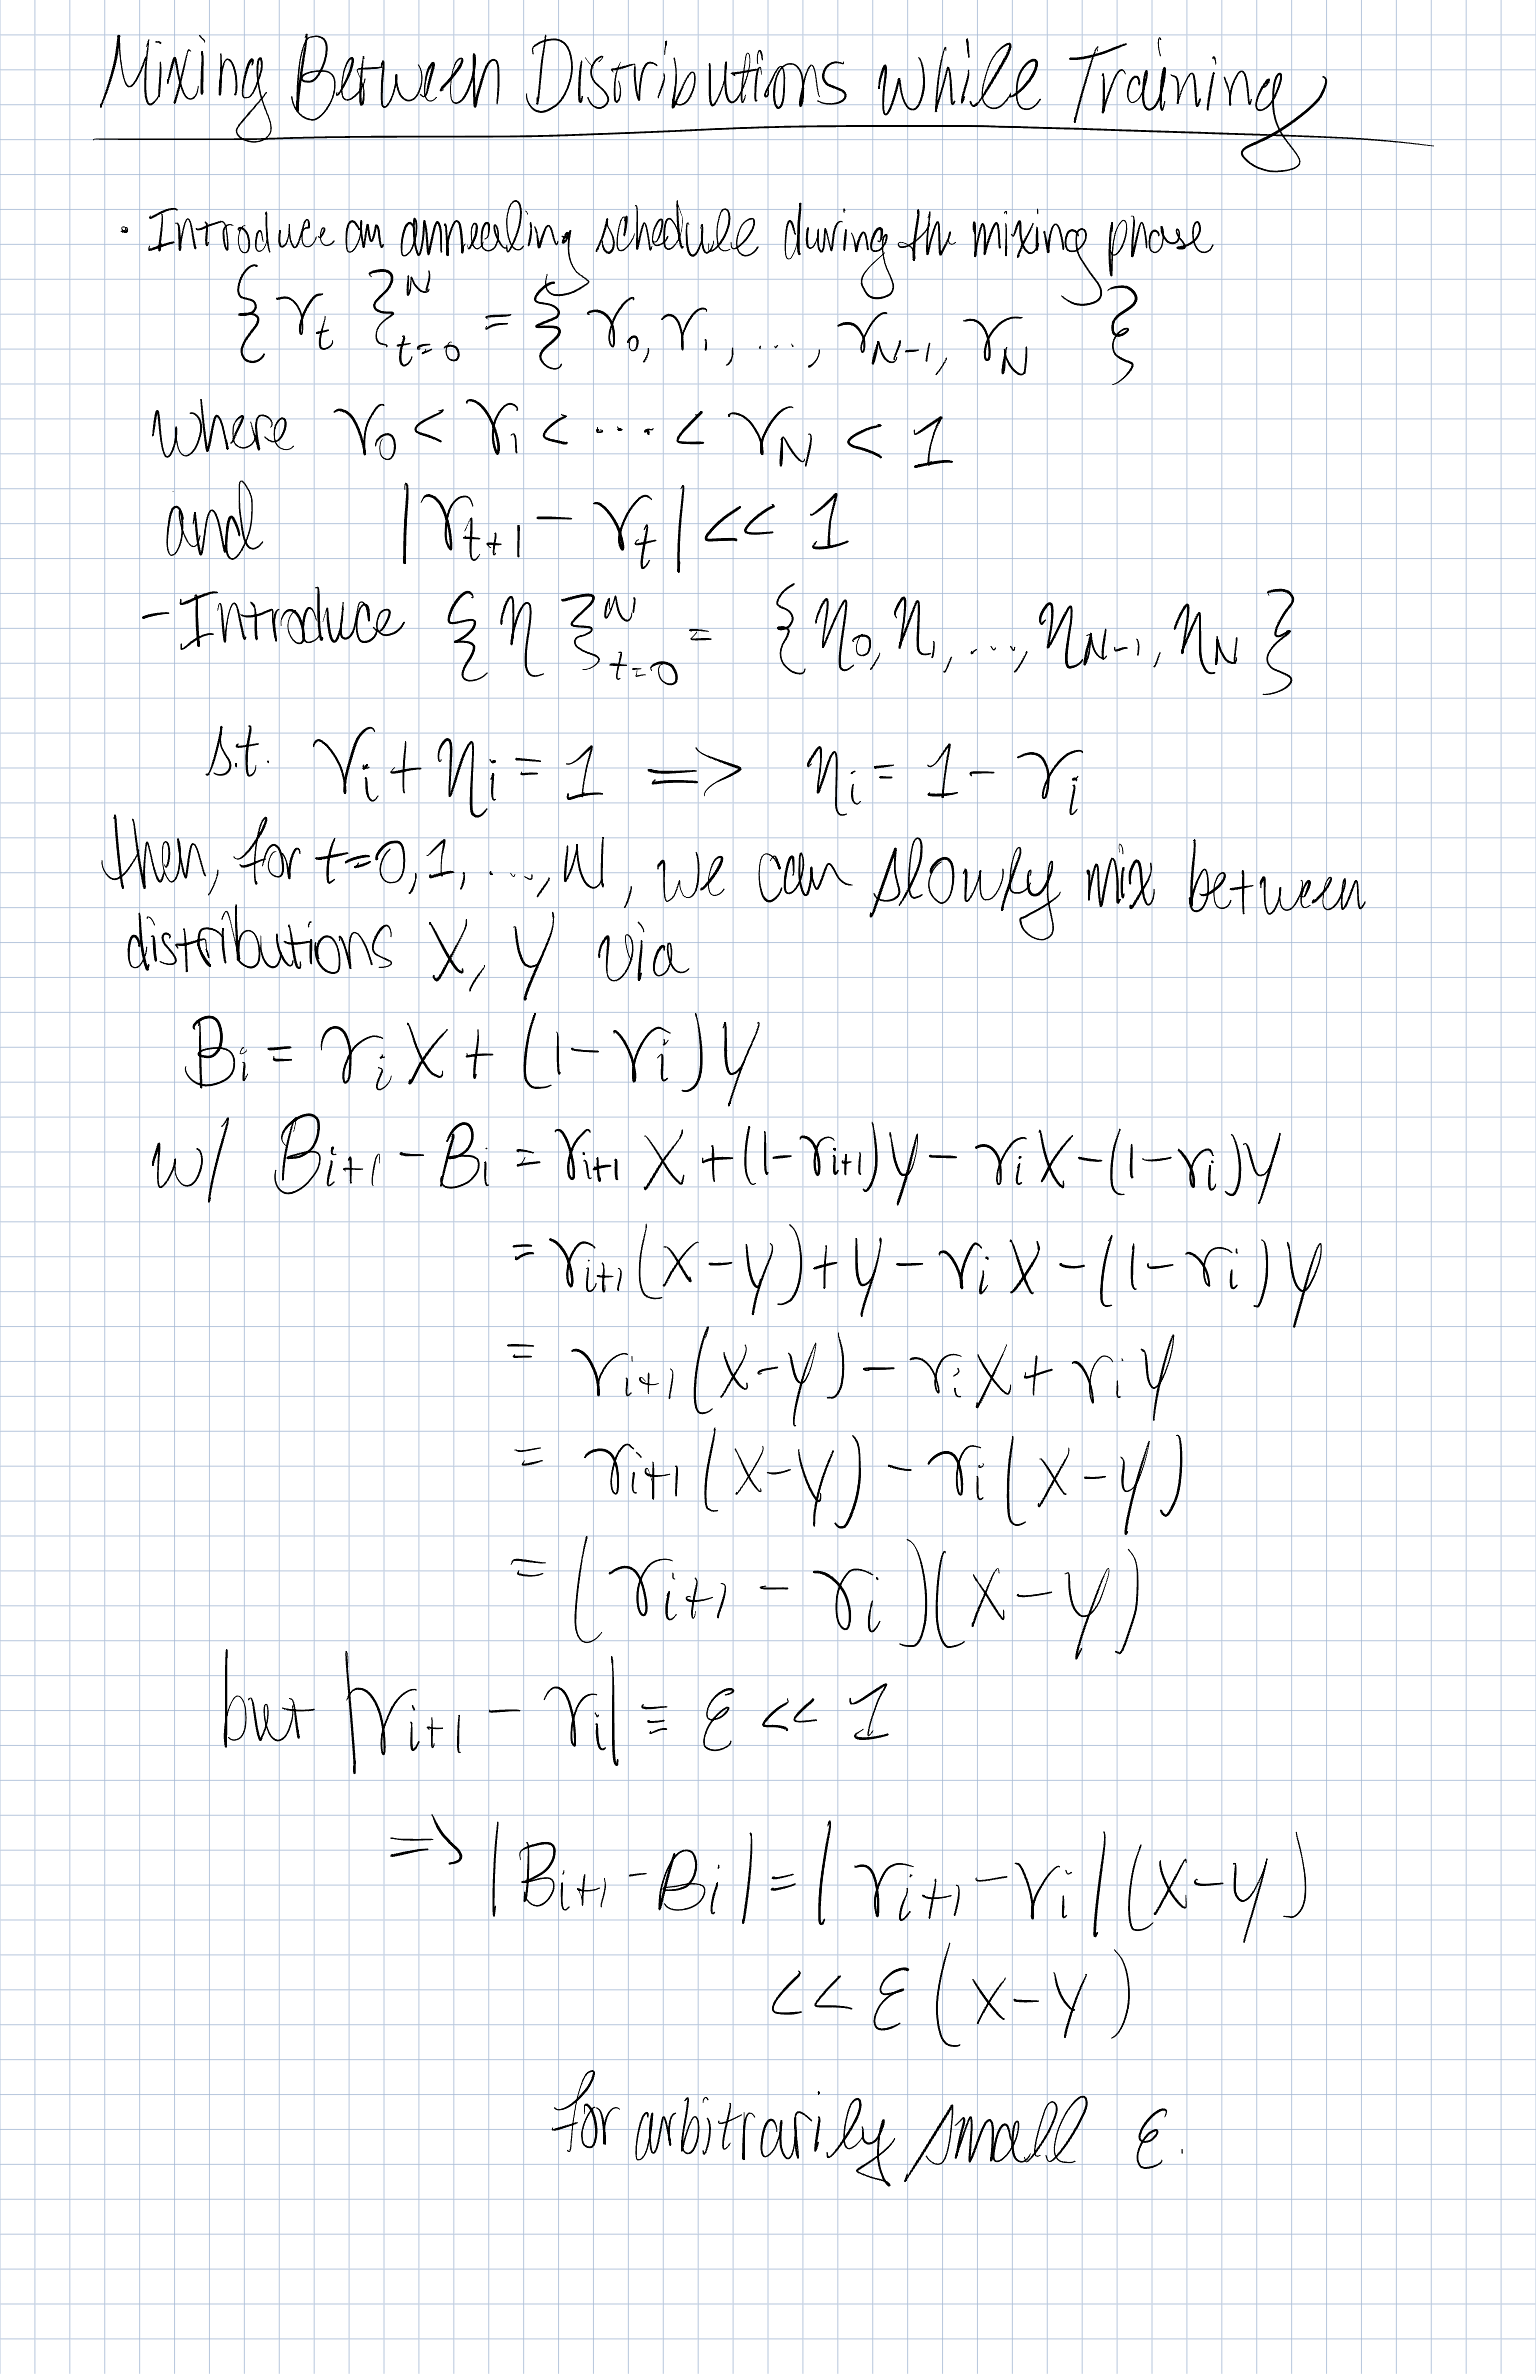 Mixing Between Distributions While Training
· Introduce an annealing schedule during the mixing phase
{γ_t}_{t=0}^N = {γ_0, γ_1, ..., γ_{N-1}, γ_N}
where γ_0 < γ_1 < ··· < γ_N < 1
and |γ_{t+1} - γ_t| << 1
- Introduce {η}_{t=0}^N = {η_0, η_1, ..., η_{N-1}, η_N}
s.t. γ_i + η_i = 1 => η_i = 1 - γ_i
then, for t=0,1,...,N, we can slowly mix between
distributions X, Y via
B_i = γ_i X + (1-γ_i)Y
w/ B_{i+1} - B_i = γ_{i+1} X + (1-γ_{i+1})Y - γ_i X - (1-γ_i)Y
= γ_{i+1}(X-Y) + Y - γ_i X - (1-γ_i)Y
= γ_{i+1}(X-Y) - γ_i X + γ_i Y
= γ_{i+1}(X-Y) - γ_i(X-Y)
= (γ_{i+1} - γ_i)(X-Y)
but |γ_{i+1} - γ_i| ≡ ε << 1
=> |B_{i+1} - B_i| = |γ_{i+1} - γ_i|(X-Y)
<< ε(X-Y)
for arbitrarily small ε.